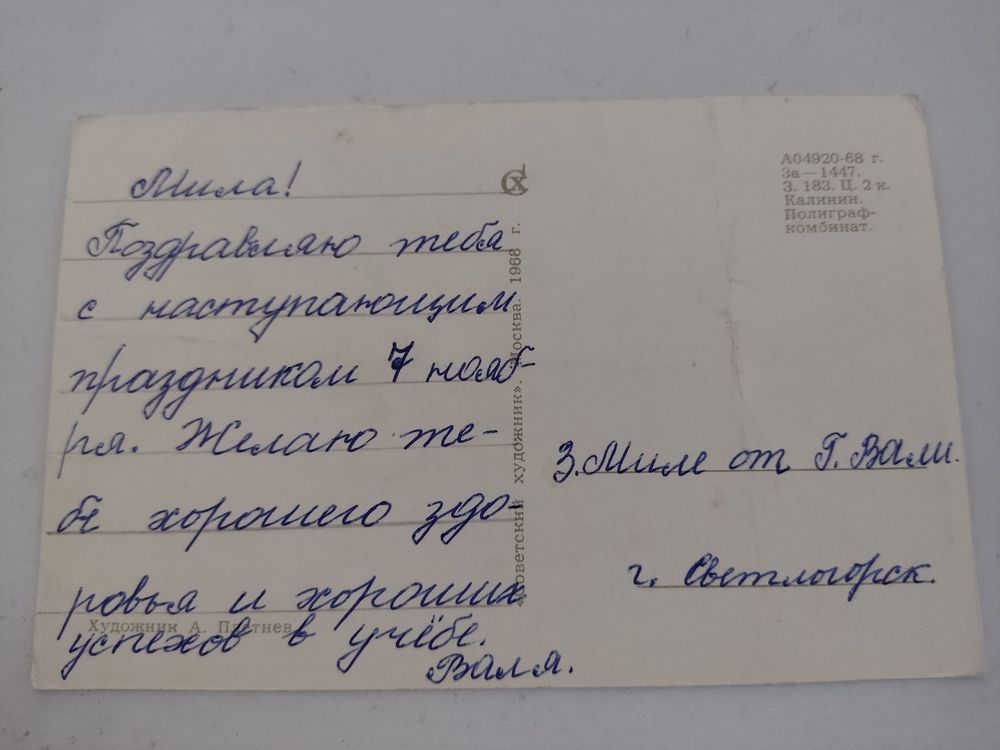 Мила!
Поздравляю тебя
с наступающим
праздником 7 нояб-
ря. Желаю те-
бе хорошего здо-
ровья и хороших
успехов в учёбе.
Валя.
Художник А. Плетнев
«Советский художник». Москва. 1968 г.
СХ
А04920-68 г.
За—1447.
З. 183. Ц. 2 к.
Калинин.
Полиграф-
комбинат.
З. Миле от Г. Вали.
г. Светлогорск.